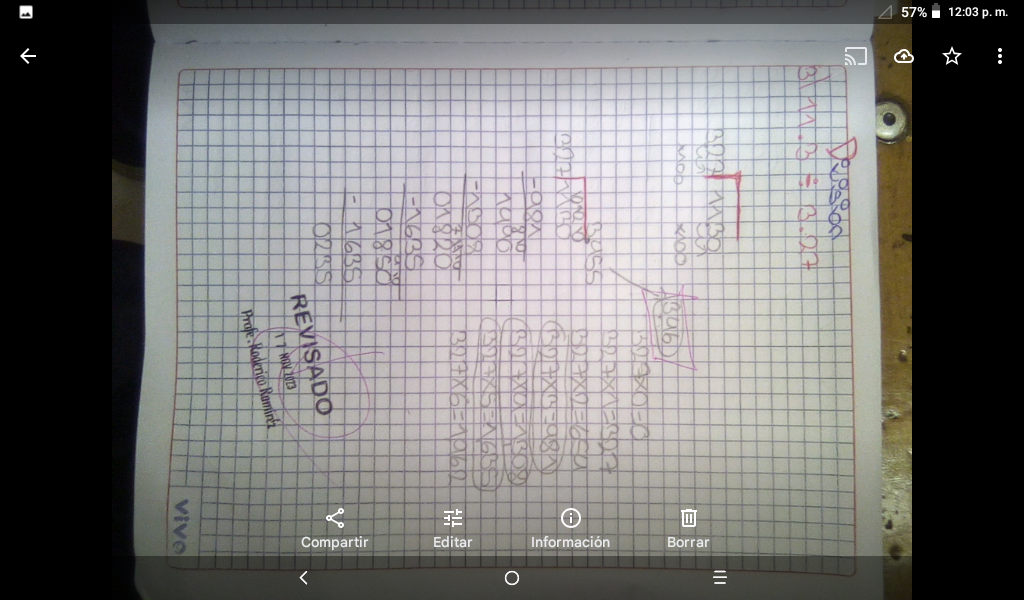 57% 12:03 p. m.
División
3) 11.3 ÷ 3.27
327 1130
x100 x100
3.46
3455
327 1130
-981
1490
-1308
01820
-1635
01850
-1635
0235
327x0=0
327x1=327
327x2=654
327x3=981
327x4=1308
327x5=1635
327x6=1962
REVISADO
17 NOV 2023
Profr. Roderico Ramírez
vivo
Compartir Editar Información Borrar